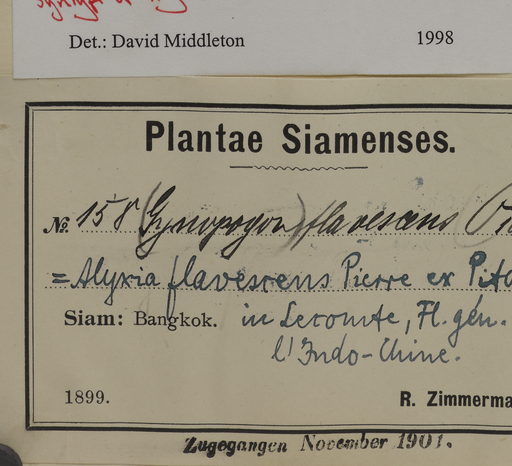 Det.: David Middleton 1998
Plantae Siamenses.
№ 158 (Gynopogon) flavescens
= Alyxia flavescens Pierre ex Pita
Siam: Bangkok. in Lecomte, Fl. gén.
l'Indo-Chine.
1899. R. Zimmerma
Zugegangen November 1901.